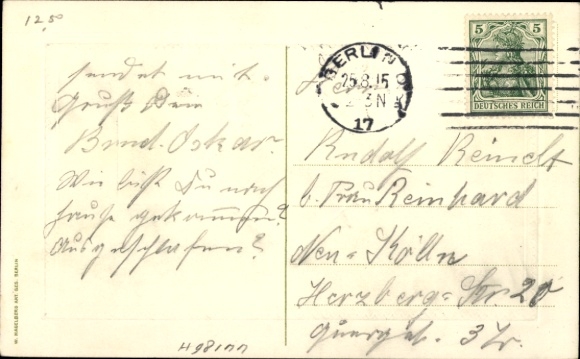 12,50
sendet mit
Gruß Dein
Brud. Oskar.
Wie bist Du nach
hause gekommen?
Ausgeschlafen?
BERLIN
25.8.15
N
17
5 5
DEUTSCHES REICH
Herrn
Rudolf Reinelt
b. Frau Reinhard
Neu-Kölln
Herzberg-Str 20
Quergeb. 3 Tr.
W. HAGELBERG AKT. GES. BERLIN